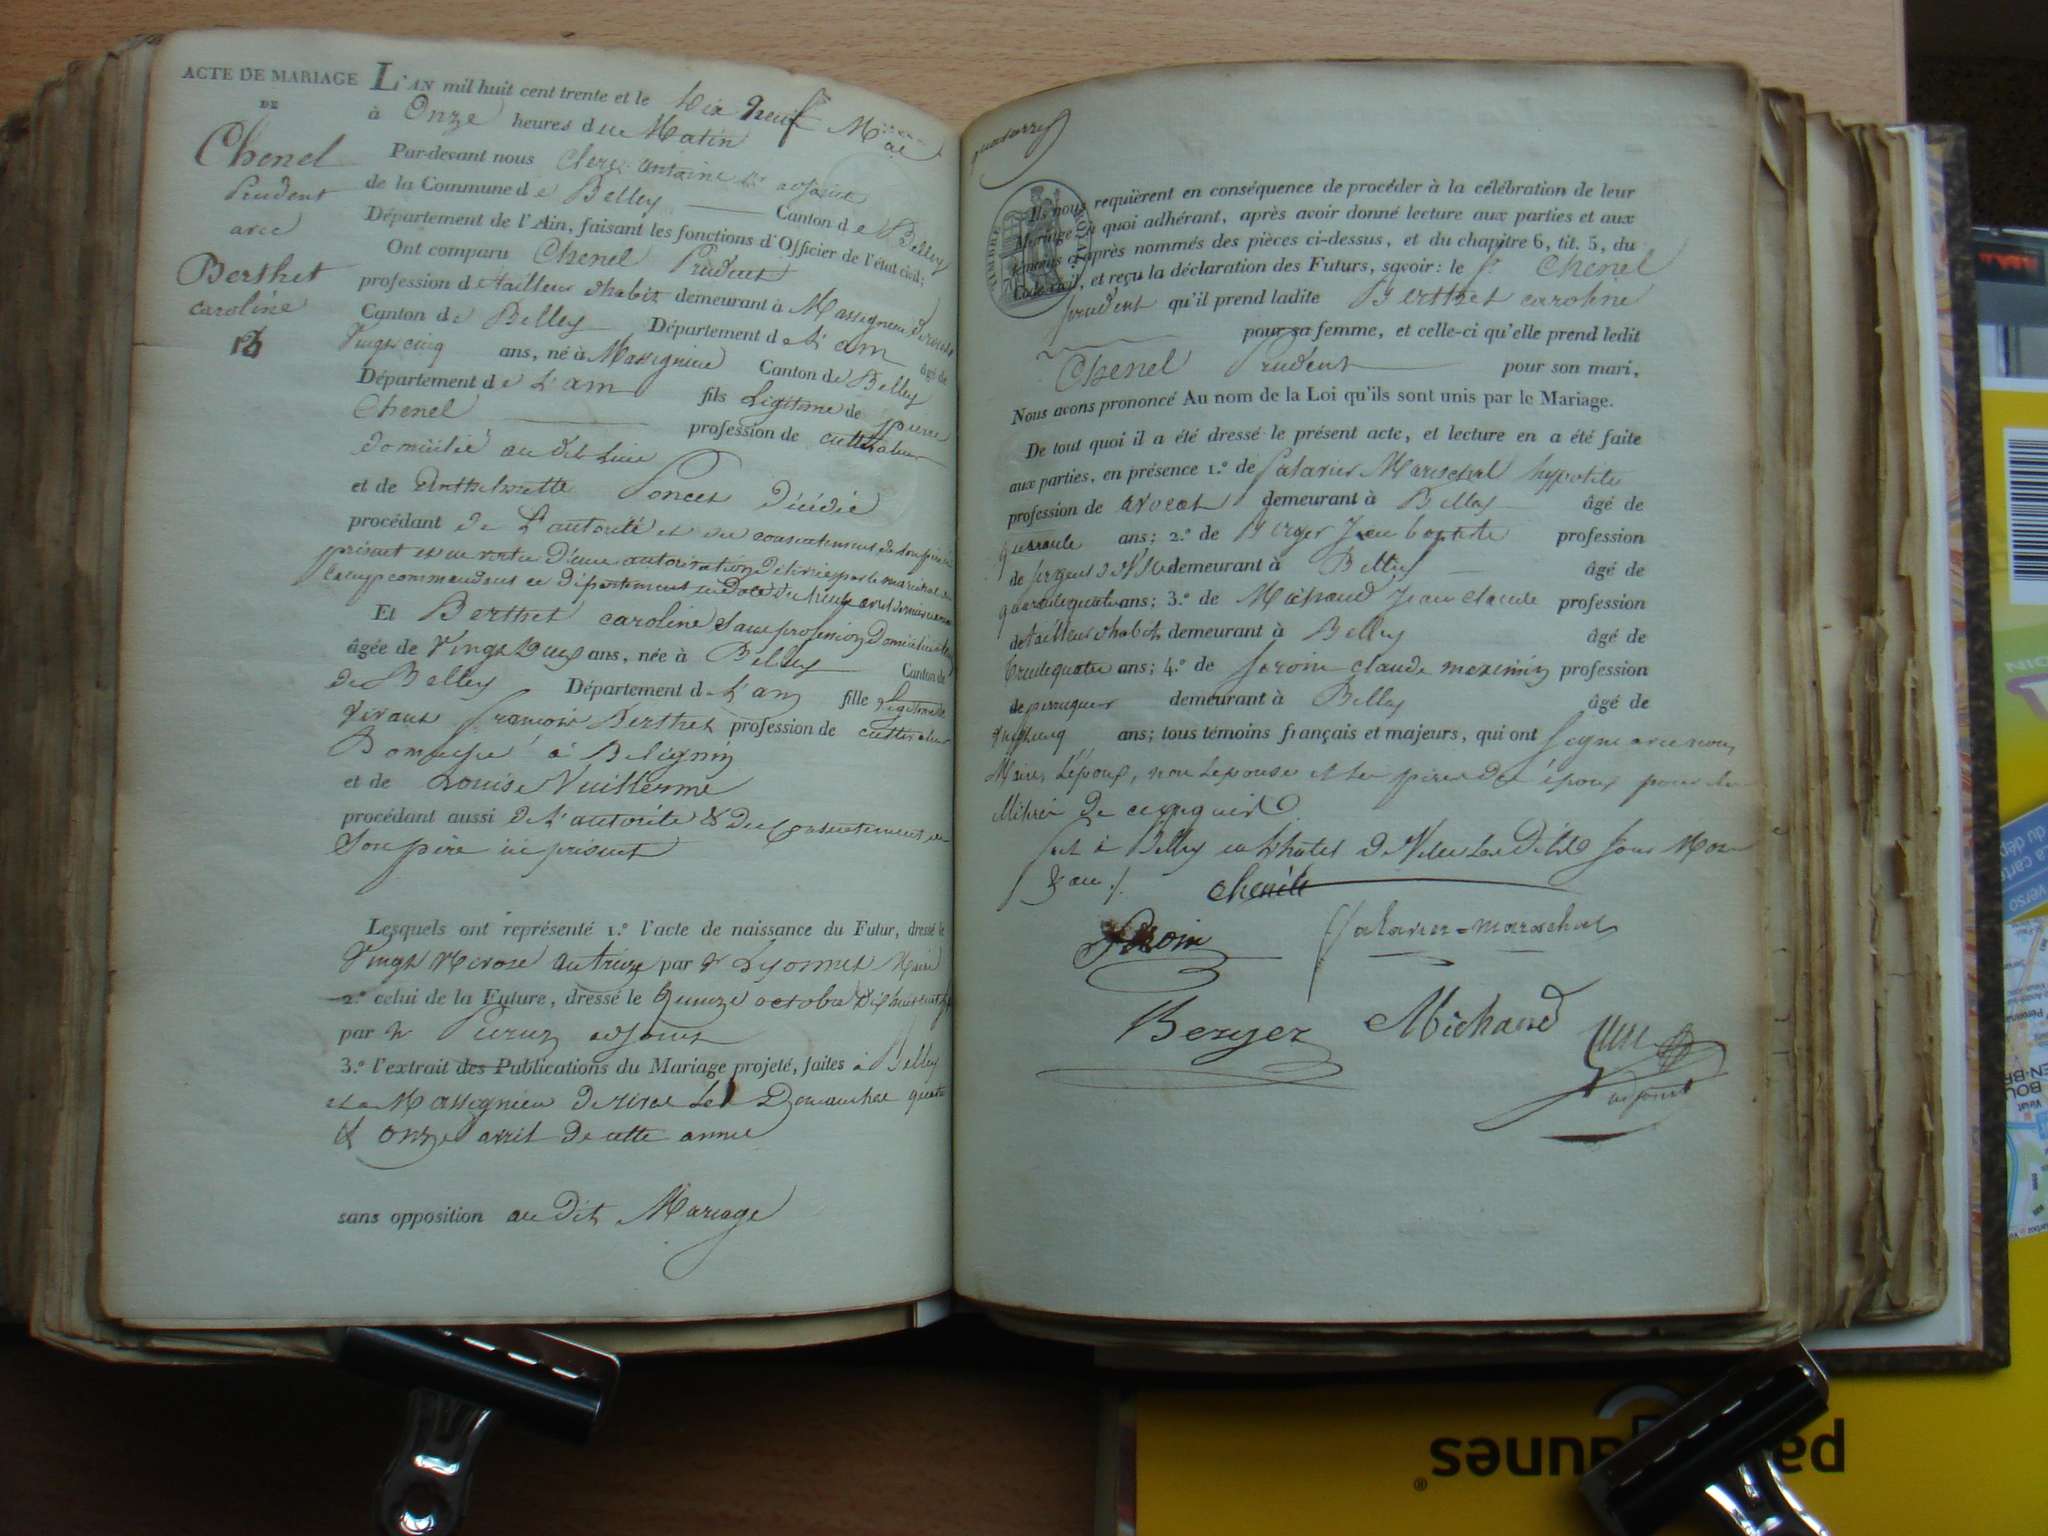 ACTE DE MARIAGE
DE
Chenel
Prudent
avec
Berthet
caroline
L'AN mil huit cent trente et le Dix Neuf Mai
à Onze heures du Matin
Par-devant nous Clerc Antoine adjoint
de la Commune de Belley Canton de Belley
Département de l'Ain, faisant les fonctions d'Officier de l'état civil;
Ont comparu Chenel Prudent
profession de tailleur d'habit demeurant à Massignieu de rives
Canton de Belley Département de L'ain âgé de
Vingt cinq ans, né à Massignieu Canton de Belley
Département de L'ain fils Légitime de pierre
Chenel profession de cultivateur
domicilié au dit Lieu
et de Anthelmette Poncet Décédée
procédant de L'autorité et du consentement de son père ici
présent et en vertu d'une autorisation délivrée par le maréchal de
Camp commandant ce département en date du
Et Berthet caroline sans profession domiciliée à
âgée de Vingt Deux ans, née à Belley Canton
de Belley Département de L'ain fille Légitime de
vivant françois Berthet profession de cultivateur
Domicilié à Belignin
et de Louise Vuillerme
procédant aussi de L'autorité & du Consentement de
Son père ici présent
Lesquels ont représenté 1.° l'acte de naissance du Futur, dressé le
Vingt Nivose an treize par Mr Lyonnet Maire
2.° celui de la Future, dressé le Quinze octobre Dix huit cent
par Mr adjoint
3.° l'extrait des Publications du Mariage projeté, faites à Belley
et à Massignieu de rives Les Dimanches quatre
& onze avril de cette année
sans opposition au dit Mariage
TIMBRE ROYAL
Ils nous requièrent en conséquence de procéder à la célébration de leur
Mariage à quoi adhérant, après avoir donné lecture aux parties et aux
témoins ci-après nommés des pièces ci-dessus, et du chapitre 6, tit. 5, du
Code civil, et reçu la déclaration des Futurs, savoir: le Sr Chenel
prudent qu'il prend ladite Berthet caroline
pour sa femme, et celle-ci qu'elle prend ledit
Chenel Prudent pour son mari,
Nous avons prononcé Au nom de la Loi qu'ils sont unis par le Mariage.
De tout quoi il a été dressé le présent acte, et lecture en a été faite
aux parties, en présence 1.° de Galavier Mareschal hyppolite
profession de avocat demeurant à Belley âgé de
quarante ans; 2.° de Berger Jean baptiste profession
de sergent de Ville demeurant à Belley âgé de
quarante quatre ans; 3.° de Michaud Jean Claude profession
de tailleur d'habit demeurant à Belley âgé de
trente quatre ans; 4.° de Feroin claude maximin profession
de perruquier demeurant à Belley âgé de
vingt cinq ans; tous témoins français et majeurs, qui ont Signé avec nous
Maire, L'époux, non Lepouse et les pères des époux pour
de ce requis
fait à Belley en L'hôtel de Ville Les dits Jour Mois
& an ./.
chenele
Feroin
Galavier=mareschal
Berger
Michaud
Clerc
adjoint
pages jaunes